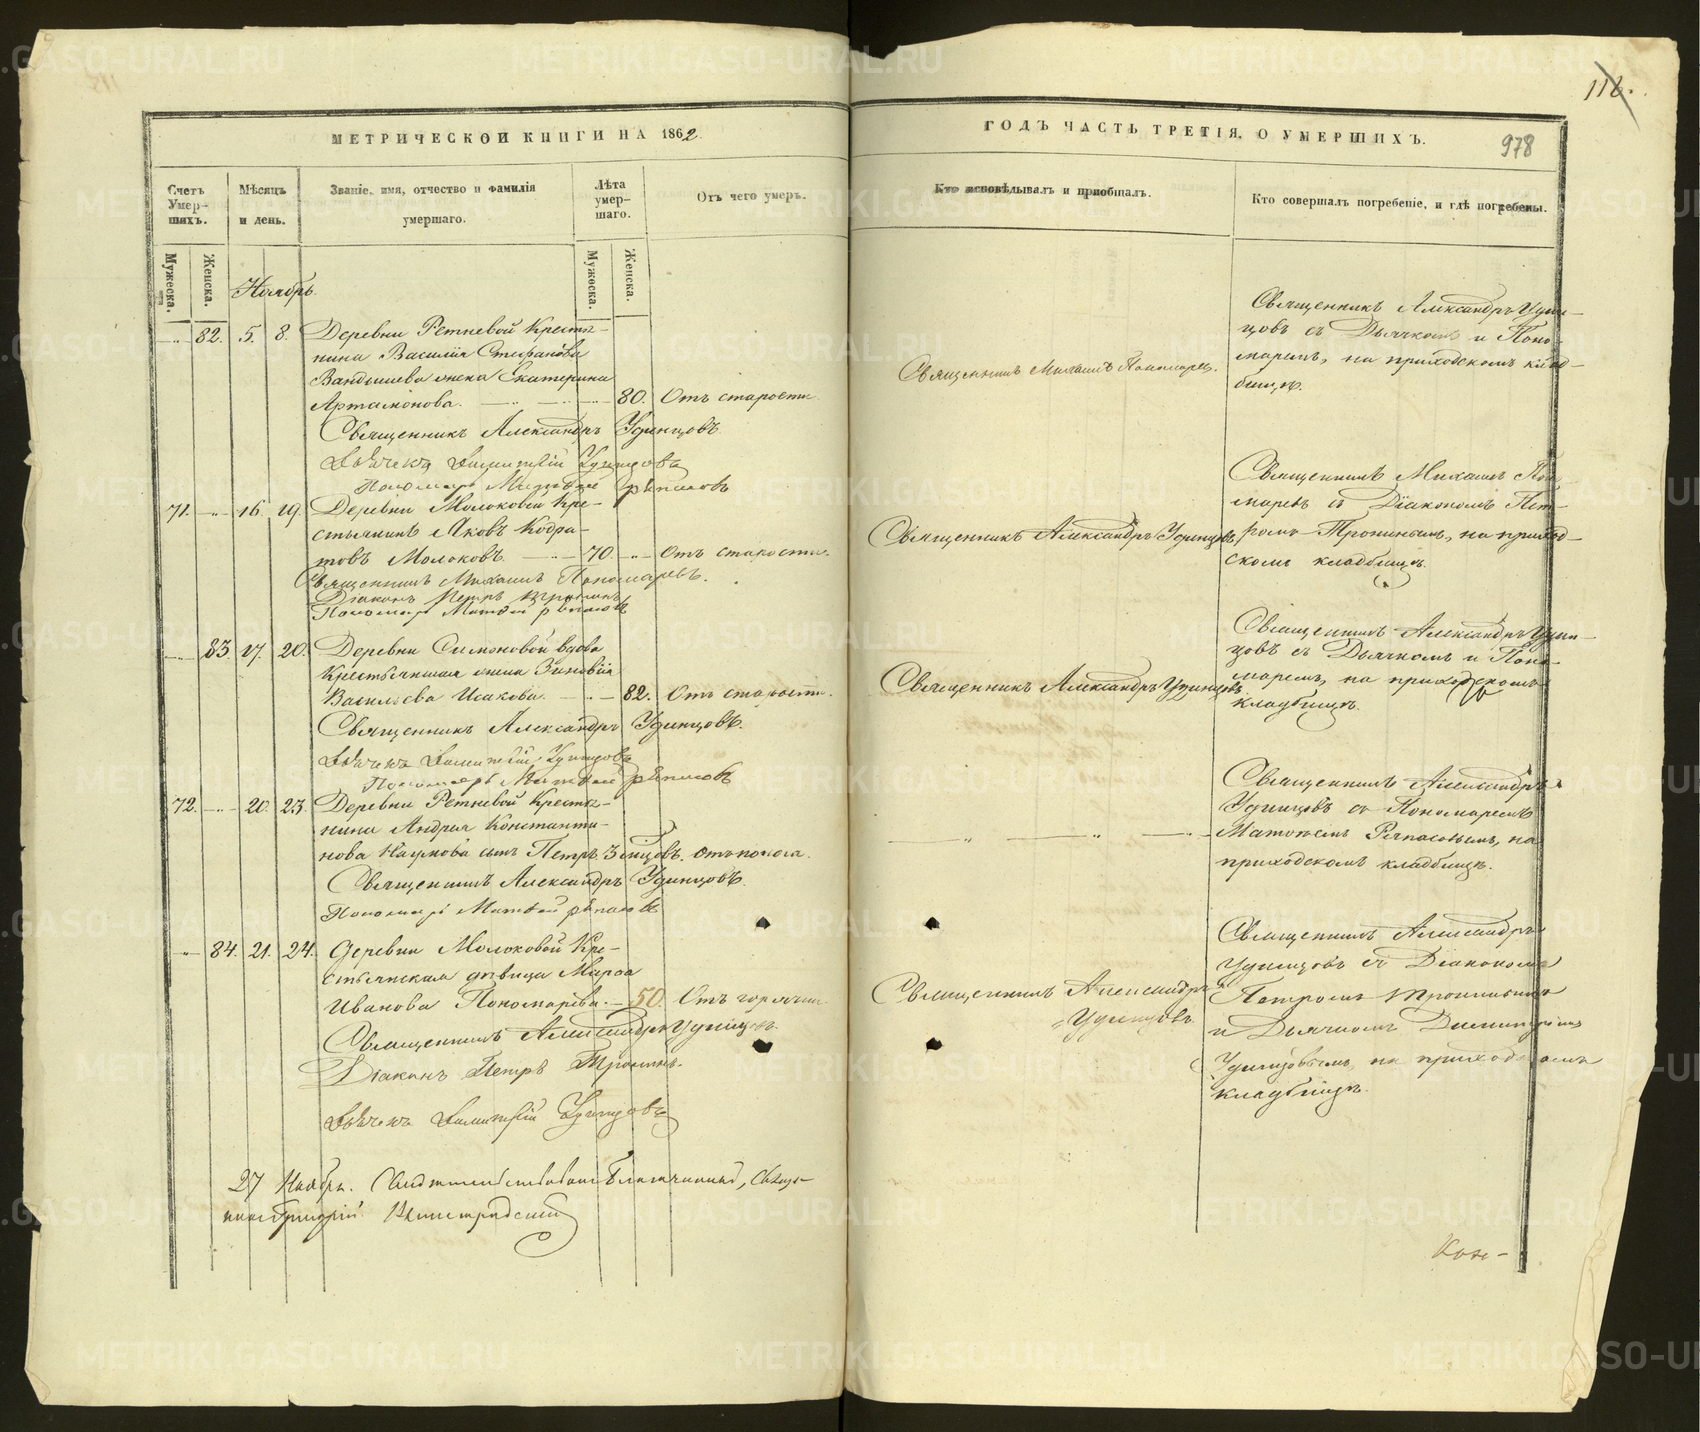 МЕТРИЧЕСКОЙ КНИГИ НА 1862
ГОДЪ ЧАСТЬ ТРЕТІЯ, О УМЕРШИХЪ.
116.
978
Счетъ Умер-шихъ.
Мѣсяцъ и день.
Званіе, имя, отчество и фамилія умершаго.
Лѣта умер-шаго.
Отъ чего умеръ.
Кто исповѣдывалъ и пріобщалъ.
Кто совершалъ погребеніе, и гдѣ погребены.
Мужеска.
Женска.
Мужеска.
Женска.
Ноябрь.
82. 5. 8. Деревни Ретневой Крестья-
нина Василія Стефанова
Вандышева жена Екатерина
Артамонова. 80. Отъ старости
Священникъ Александръ Удинцовъ
Дьячекъ Димитрій Удинцовъ
Пономарь Матвей Рѣпасовъ
Священникъ Михаилъ Пономаревъ.
Священникъ Александръ Удин-
цовъ съ Дьячкомъ и Поно-
маремъ, на приходскомъ клад-
бищѣ.
71. 16. 19. Деревни Молоковой Кре-
стьянинъ Яковъ Кодра-
товъ Молоковъ 70. Отъ старости.
Священникъ Михаилъ Пономаревъ.
Діаконъ Петръ Тронинъ
Пономарь Матвей Рѣпасовъ
Священникъ Александръ Удинцовъ,
Священникъ Михаилъ Поно-
маревъ съ Діакономъ Пет-
ромъ Тронинымъ, на приход-
скомъ кладбищѣ.
83. 17. 20. Деревни Симоновой вдова
Крестьянская жена Зиновія
Васильева Исакова. 82. Отъ старости.
Священникъ Александръ Удинцовъ.
Дьячекъ Димитрій Удинцовъ
Пономарь Матвей Рѣпасовъ
Священникъ Александръ Удинцовъ
Священникъ Александръ Удин-
цовъ съ Дьячкомъ и Поно-
маремъ, на приходскомъ
кладбищѣ.
72. 20. 23. Деревни Ретневой Крестья-
нина Андрея Константи-
нова Наумова сынъ Петръ 3 мѣсяцовъ. Отъ поноса.
Священникъ Александръ Удинцовъ.
Пономарь Матвей Рѣпасовъ
Священникъ Александръ
Удинцовъ съ Пономаремъ
Матвѣемъ Рѣпасовымъ, на
приходскомъ кладбищѣ.
84. 21. 24. Деревни Молоковой Кре-
стьянская дѣвица Марѳа
Иванова Пономарева. 50. Отъ горячки
Священникъ Александръ Удинцовъ.
Діаконъ Петръ Тронинъ.
Дьячекъ Димитрій Удинцовъ
Священникъ Александръ
Удинцовъ
Священникъ Александръ
Удинцовъ съ Діакономъ
Петромъ Тронинымъ
и Дьячкомъ Димитріемъ
Удинцовымъ, на приходскомъ
кладбищѣ.
27 Ноября. Свидетельствовалъ Благочинный, Священ-
никъ Григорій